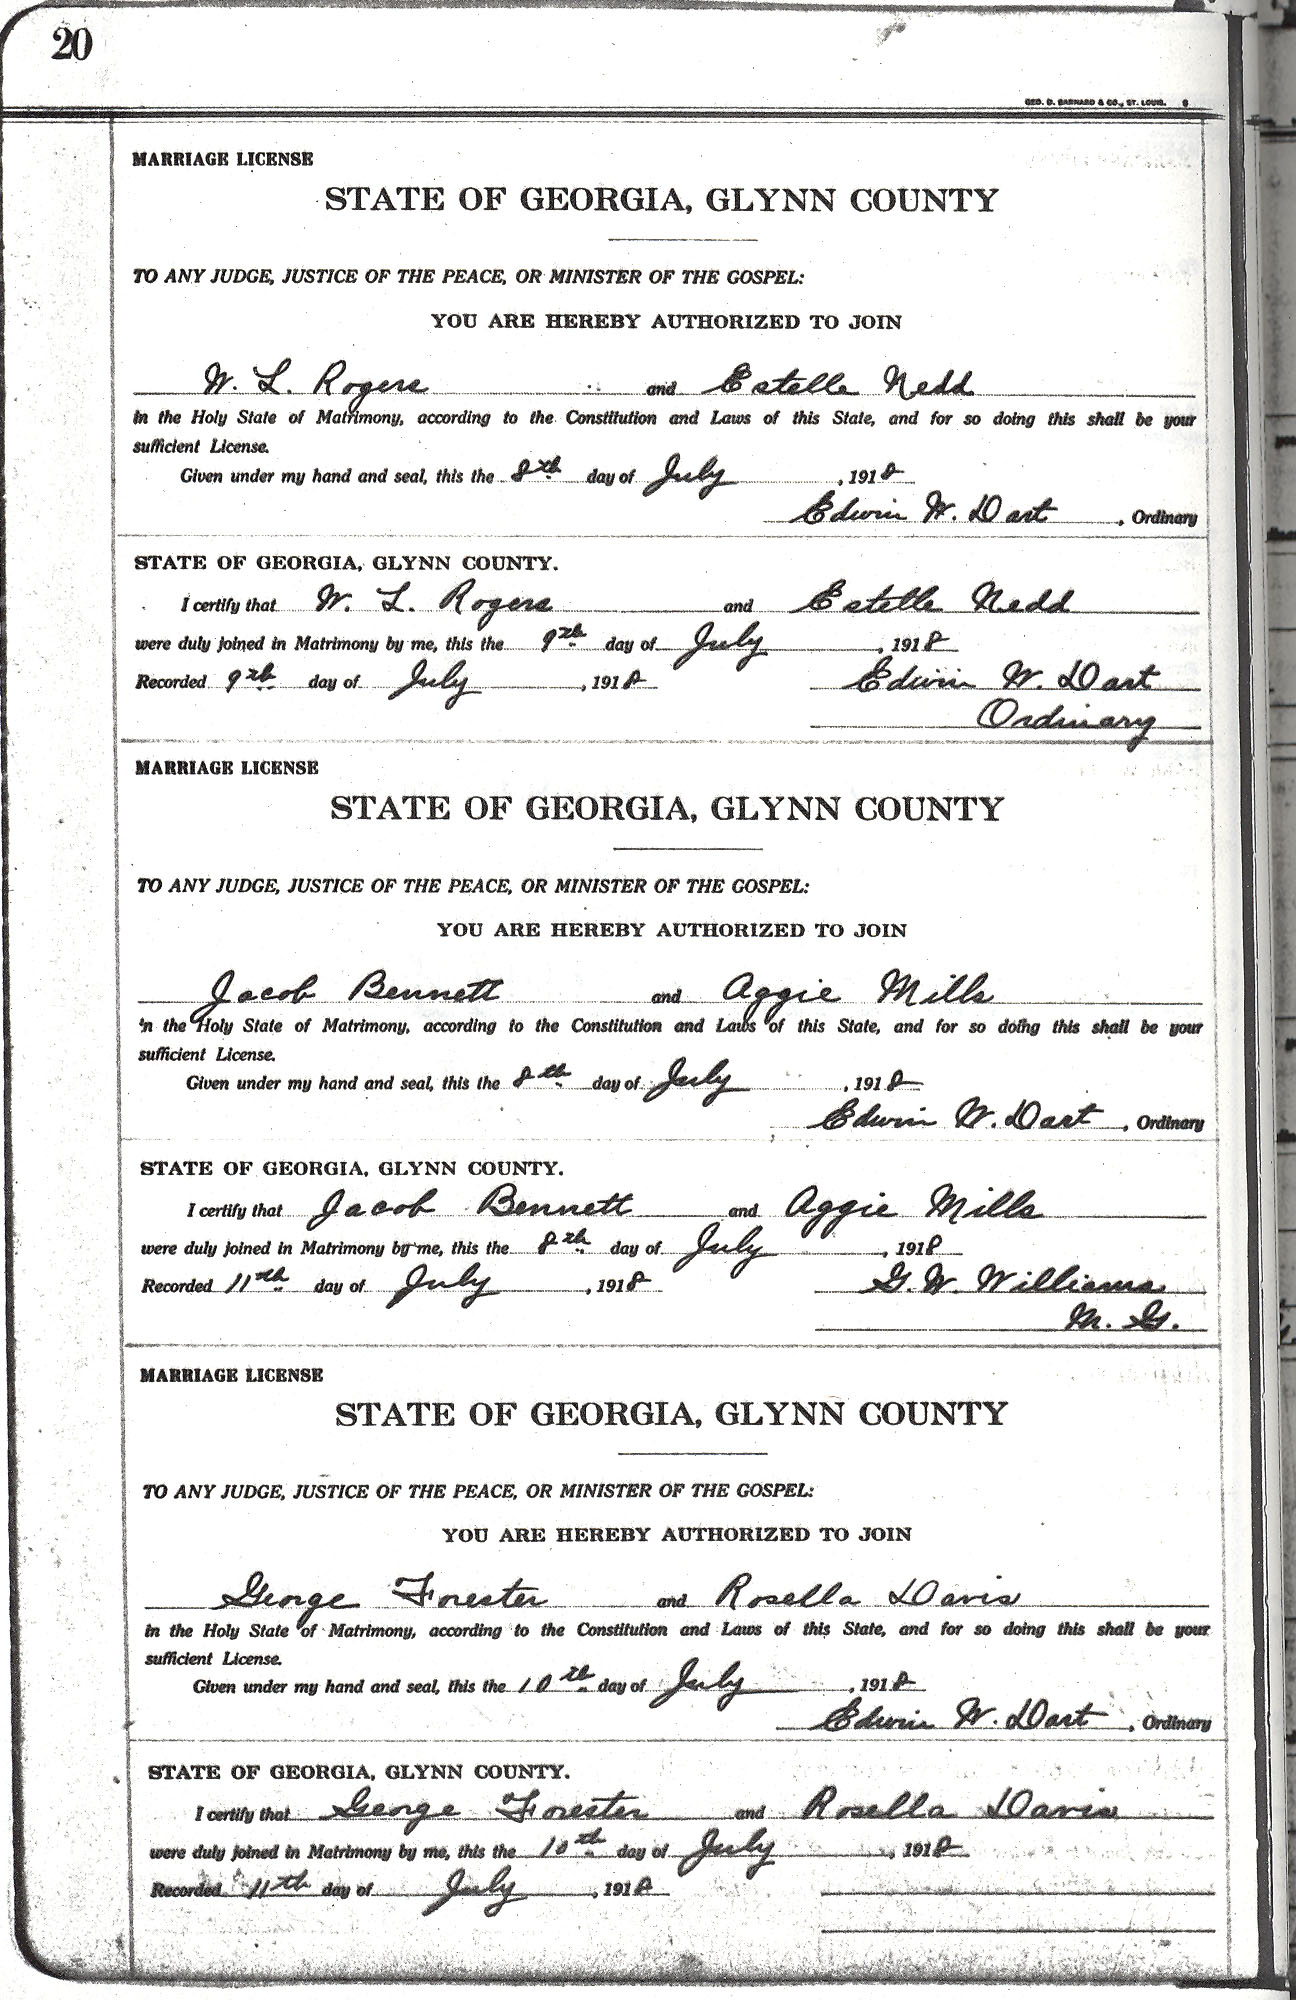 20
GEO. D. BARNARD & CO., ST. LOUIS. 6
MARRIAGE LICENSE
STATE OF GEORGIA, GLYNN COUNTY
TO ANY JUDGE, JUSTICE OF THE PEACE, OR MINISTER OF THE GOSPEL:
YOU ARE HEREBY AUTHORIZED TO JOIN
W. L. Rogers and Estelle Nedd
in the Holy State of Matrimony, according to the Constitution and Laws of this State, and for so doing this shall be your
sufficient License.
Given under my hand and seal, this the 8th day of July, 1918
Edwin W. Dart, Ordinary
STATE OF GEORGIA, GLYNN COUNTY.
I certify that W. L. Rogers and Estelle Nedd
were duly joined in Matrimony by me, this the 9th day of July, 1918
Recorded 9th day of July, 1918 Edwin W. Dart
Ordinary
MARRIAGE LICENSE
STATE OF GEORGIA, GLYNN COUNTY
TO ANY JUDGE, JUSTICE OF THE PEACE, OR MINISTER OF THE GOSPEL:
YOU ARE HEREBY AUTHORIZED TO JOIN
Jacob Bennett and Aggie Mills
in the Holy State of Matrimony, according to the Constitution and Laws of this State, and for so doing this shall be your
sufficient License.
Given under my hand and seal, this the 8th day of July, 1918
Edwin W. Dart, Ordinary
STATE OF GEORGIA, GLYNN COUNTY.
I certify that Jacob Bennett and Aggie Mills
were duly joined in Matrimony by me, this the 8th day of July, 1918
Recorded 11th day of July, 1918 G. W. Williams
M. G.
MARRIAGE LICENSE
STATE OF GEORGIA, GLYNN COUNTY
TO ANY JUDGE, JUSTICE OF THE PEACE, OR MINISTER OF THE GOSPEL:
YOU ARE HEREBY AUTHORIZED TO JOIN
George Forester and Rosella Davis
in the Holy State of Matrimony, according to the Constitution and Laws of this State, and for so doing this shall be your
sufficient License.
Given under my hand and seal, this the 10th day of July, 1918
Edwin W. Dart, Ordinary
STATE OF GEORGIA, GLYNN COUNTY.
I certify that George Forester and Rosella Davis
were duly joined in Matrimony by me, this the 10th day of July, 1918
Recorded 11th day of July, 1918